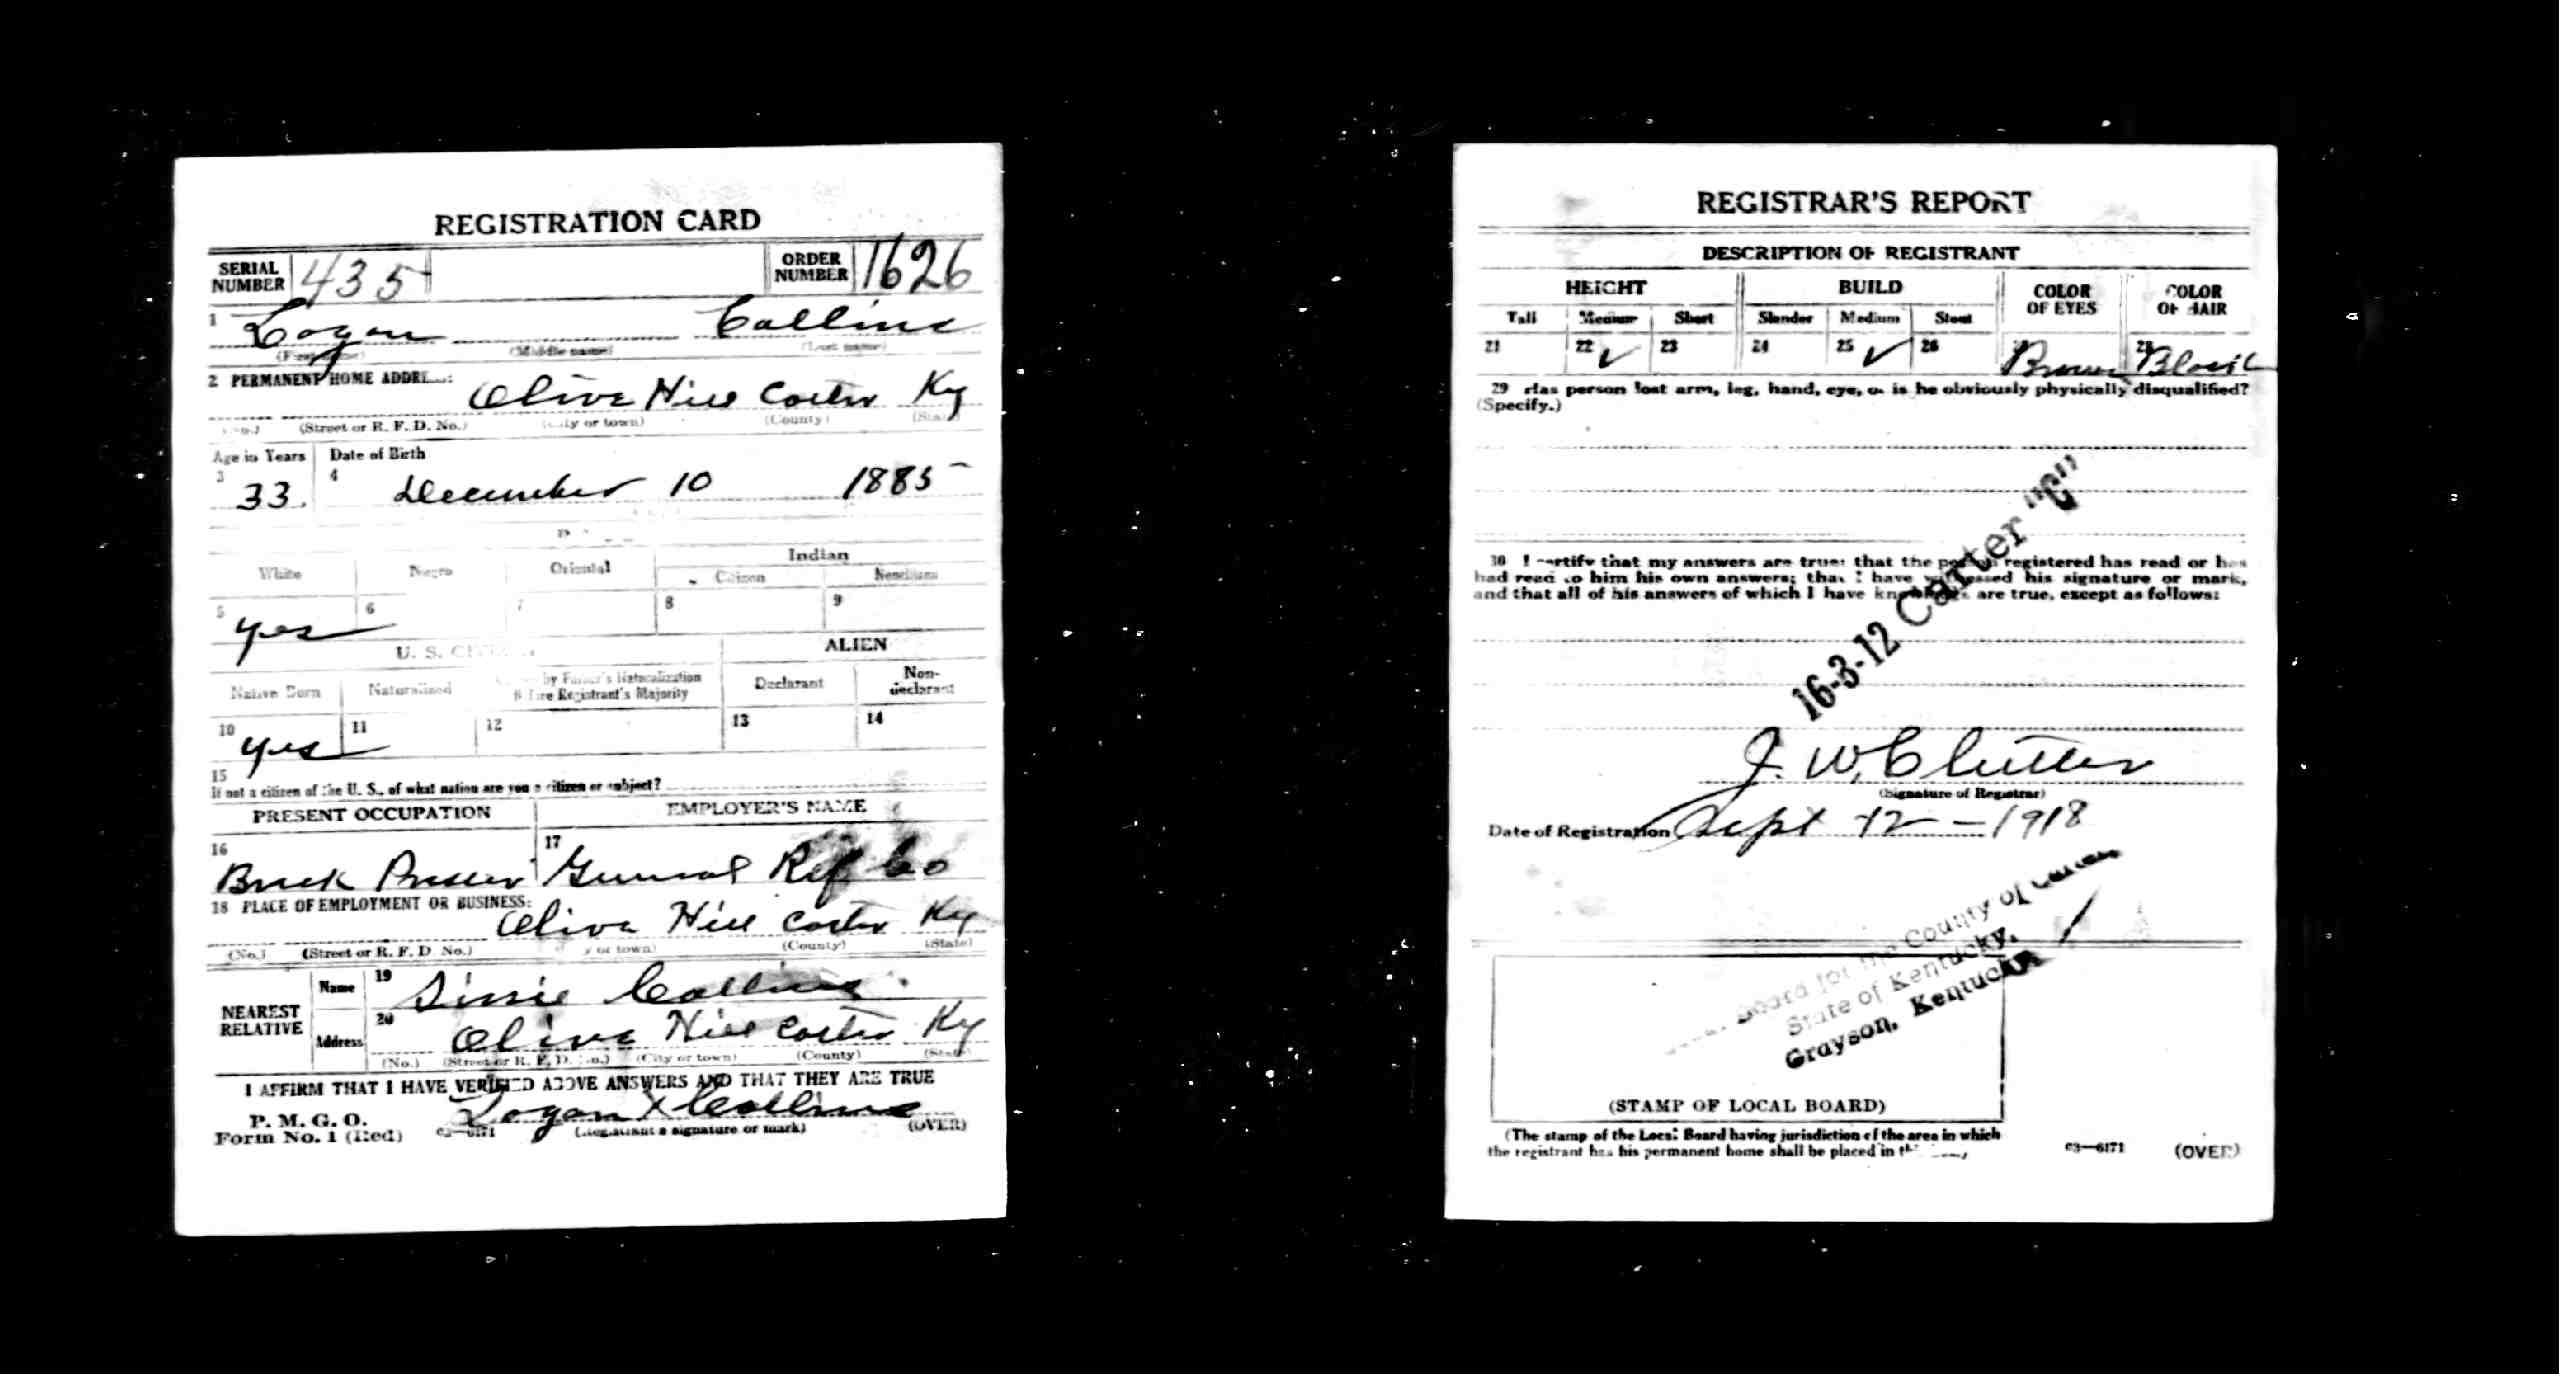 REGISTRATION CARD
SERIAL NUMBER 435 ORDER NUMBER 1626
1 Logan Collins
(First name) (Middle name) (Last name)
2 PERMANENT HOME ADDRESS:
Olive Hill Carter Ky
(No.) (Street or R. F. D. No.) (City or town) (County) (State)
Age in Years Date of Birth
3 33. 4 December 10 1885
Indian
White Negro Oriental Citizen Noncitizen
5 yes 6 7 8 9
U. S. ALIEN
Native Born Naturalized by Father's Naturalization Before Registrant's Majority Declarant Non-declarant
10 yes 11 12 13 14
15
If not a citizen of the U. S., of what nation are you a citizen or subject?
PRESENT OCCUPATION EMPLOYER'S NAME
16 Brick Presser 17 General Ref Co
18 PLACE OF EMPLOYMENT OR BUSINESS:
Olive Hill Carter Ky
(No.) (Street or R. F. D. No.) (City or town) (County) (State)
NEAREST RELATIVE Name 19 Collins
Address 20 Olive Hill Carter Ky
(No.) (Street or R. F. D. No.) (City or town) (County) (State)
I AFFIRM THAT I HAVE VERIFIED ABOVE ANSWERS AND THAT THEY ARE TRUE
P. M. G. O.
Form No. 1 (Red) 03—6171 Logan X Collins
(Registrant's signature or mark) (OVER)
REGISTRAR'S REPORT
DESCRIPTION OF REGISTRANT
HEIGHT BUILD COLOR OF EYES COLOR OF HAIR
Tall Medium Short Slender Medium Stout
21 22 ✓ 23 24 25 ✓ 26 Brown 28 Black
29 Has person lost arm, leg, hand, eye, or is he obviously physically disqualified?
(Specify.)
30 I certify that my answers are true; that the person registered has read or has
had read to him his own answers; that I have witnessed his signature or mark,
and that all of his answers of which I have knowledge are true, except as follows:
16-3-12 Carter "C"
J. W. Clutter
(Signature of Registrar)
Date of Registration Sept 12-1918
Board for the County of Carter
State of Kentucky,
Grayson, Kentucky
(STAMP OF LOCAL BOARD)
(The stamp of the Local Board having jurisdiction of the area in which
the registrant has his permanent home shall be placed in
03—6171 (OVER)